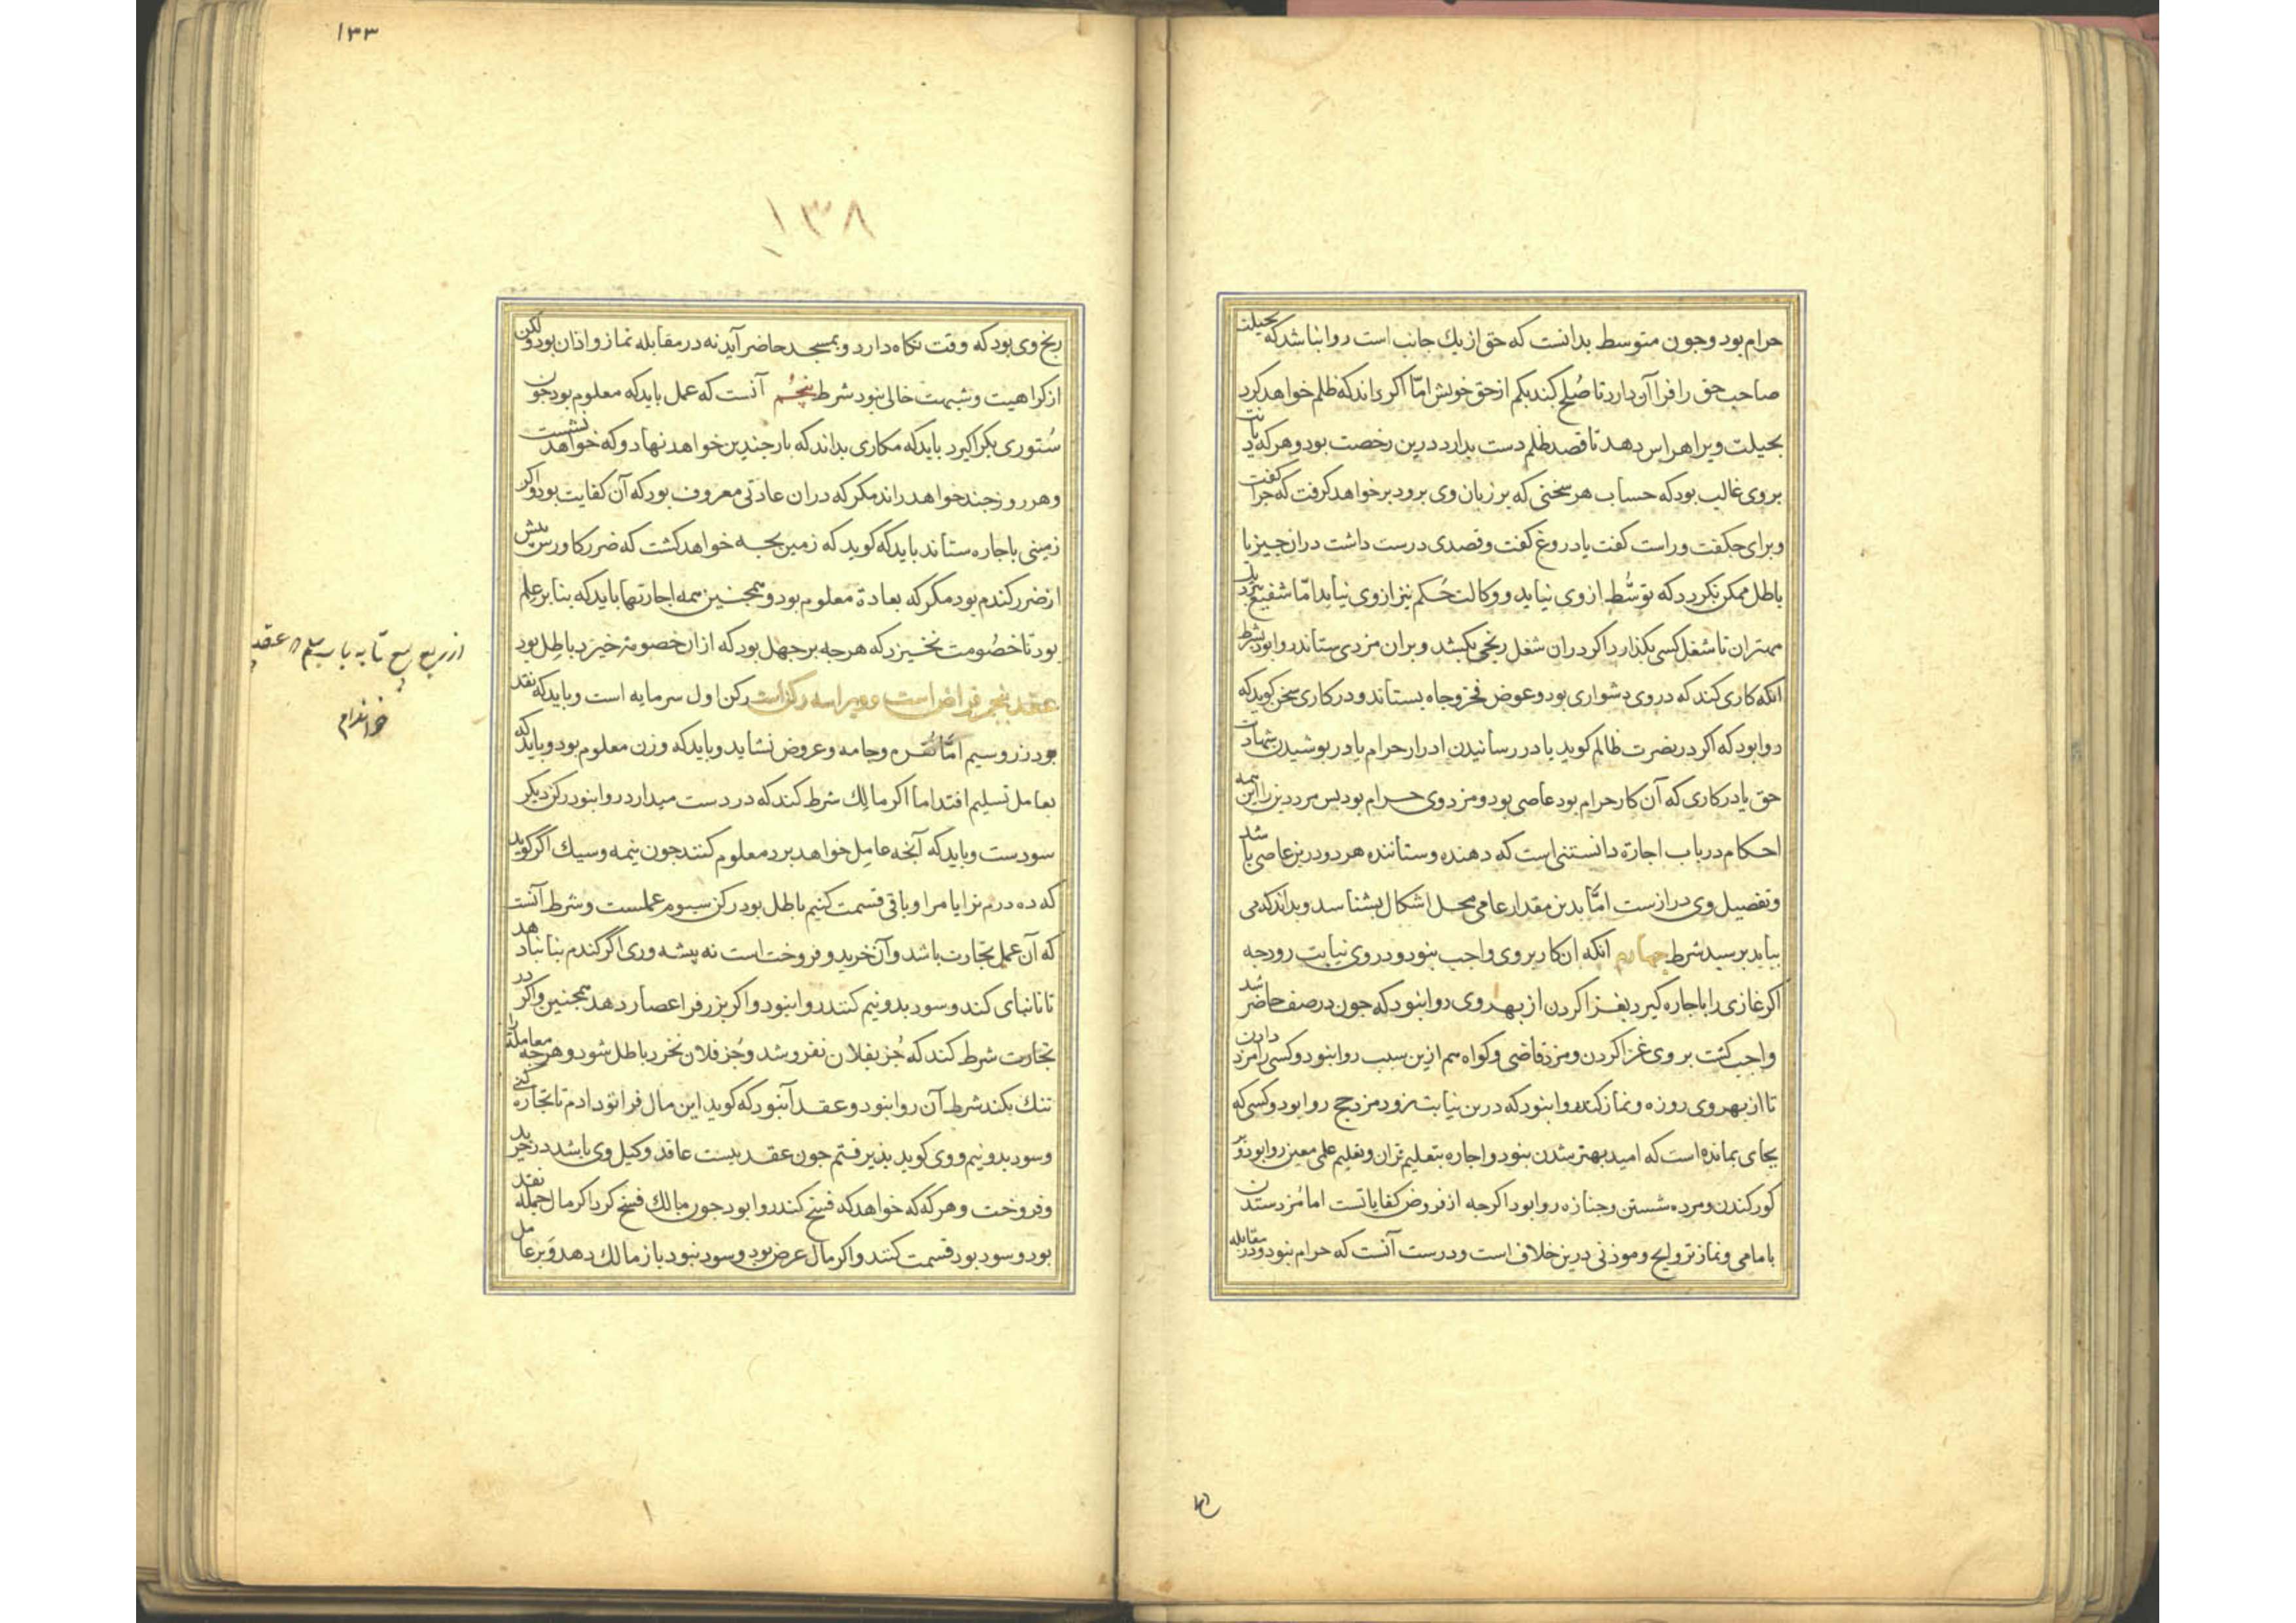 حرام بود و جون متوسط بدانست که حق از یك جانب است روا نباشد که بحیلت
صاحب حق را فرا آن دارد تا صُلح کند بکم از حق خویش امّا اکر داند که ظلم خواهد کرد
بحیلت ویرا هراس دهد تا قصد ظلم دست بدارد درین رخصت بود و هر که دیانت
بر وی غالب بود که حساب هر سخنی که بر زبان وی برود بر خواهد کرفت که جرا کفت
و برای جکفت و راست کفت یا دروغ کفت و قصدی درست داشت در ان جیز یا
باطل ممکن نکردد که توسُّط از وی نیاید و وکالت حُکم نیز از وی نیاید امّا شفیع نزدیك
مهتران تا شغل کسی بکذارد اکر در ان شغل رنجی بکشد و بران مزدی ستاند روا بود بشرط
انکه کاری کند که در وی دشواری بود و عوض فخر و جاه بستاند و در کاری سخن کوید که
روا بود که اکر در نصرت ظالم کوید یا در رسانیدن ادرار حرام یا در بوشیدن شهادت
حق یا در کاری که آن کار حرام بود عاصی بود و مزد وی حرام بود بس مرد دین را این همه
احکام در باب اجارة دانستنی است که دهنده و ستاننده هر دو درین عاصی باشد
و تفصیل وی درازست امّا بدین مقدار عامی محل اشکال بشناسد و بداند که می
بباید برسید شرط جهارم انکه ان کار بر وی واجب نبود و در وی نیابت رود جه
اکر غازی را باجاره کیرد بغزا کردن از بهر وی روا نبود که جون در صف حاضر شد
واجب کشت بر وی غزا کردن و مزد قاضی و کواه هم ازین سبب روا نبود و کسی را مزد دادن
تا از بهر وی روزه و نماز کند روا نبود که درین نیابت نرود مزد حج روا بود و کسی که
بجای بمانده است که امید بهتر شدن نبود و اجاره بتعلیم قران و تعلیم علمی معین روا بود و بر
کور کندن و مرده شستن و جنازه روا بود اکر جه از فروض کفایاتست اما مُزد ستدن
بامامی و نماز تراویح و موذنی درین خلاف است و درست آنست که حرام نبود و در مقابله
١٣٣
١٣٨
رنج وی بود که وقت نکاه دارد و بمسجد حاضر آید نه در مقابله نماز و اذان بود ولکن
از کراهیت و شبهت خالی نبود شرط پنجُم آنست که عمل باید که معلوم بود جون
سُتوری بکرا کیرد باید که مکاری بداند که بار جندین خواهد نهاد و که خواهد نشست
و هر روز جند خواهد راند مکر که در ان عادتی معروف بود که آن کفایت بود و اکر
زمینی باجاره ستاند باید که کوید که زمین بجه خواهد کشت که ضرر کاورس بیش
از ضرر کندم بود مکر که بعادة معلوم بود و همجنین همه اجارتها باید که بنا بر عِلم
بود تا خصُومت نخیزد که هر جه بر جهل بود که از ان خصومة خیزد باطِل بود
عقد پنجم قراض است و ویرا سه رکن است رکن اول سرمایه است و باید که نقد
بود زر و سیم امّا نُقره و جامه و عروض نشاید و باید که وزن معلوم بود و باید که
بعامل تسلیم افتد اما اکر مالِك شرط کند که در دست میدارد روا نبود رکن دیکر
سودست و باید که آنجه عامِل خواهد برد معلوم کنند جون نیمه و سیك اکر کوید
که ده درم ترا یا مرا و باقی قسمت کنیم باطل بود رکن سیوم عملست و شرط آنست
که آن عمل تجارت باشد و آن خرید و فروخت است نه پیشه وری اکر کندم بنانبا دهد
تا نانبای کند و سود بدو نیم کنند روا نبود و اکر بزر فرا عصار دهد همجنین و اکر در
تجارت شرط کند که جُز بفلان نفروشد و جُز فلان نخرد باطل شود و هر جه معاملة را
تنك بکند شرط آن روا نبود و عقد آن بود که کوید این مال فرا تو دادم تا تجارة کنی
و سود بدو نیم و وی کوید بذیرفتم جون عقد ببست عاقد وکیل وی باشد در خرید
و فروخت و هر که که خواهد که فسخ کند روا بود جون مالك فسخ کرد اکر مال جمله نقد
بود و سود بود قسمت کنند و اکر مال عرض بود و سود نبود باز مالك دهد و بر عامل
از ربع بیع تا به باب سلم عقد
خواندم